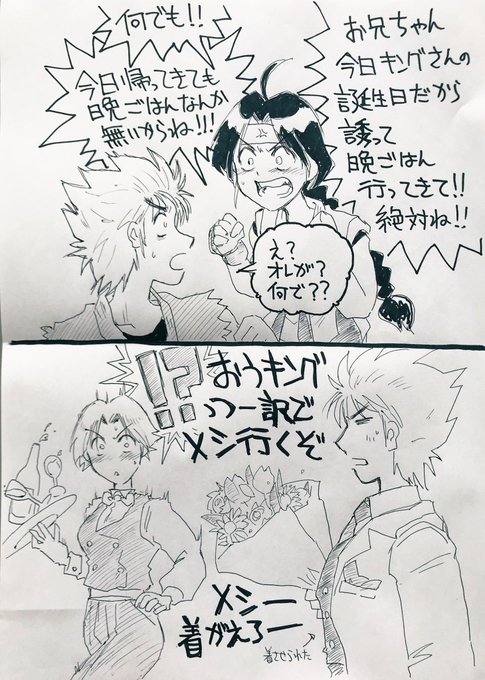 お兄ちゃん
今日キングさんの
誕生日だから
誘って
晩ごはん
行ってきて!!
絶対ね!!
え?
オレが?
何で??
何でも!!
今日帰ってきても
晩ごはんなんか
無いからね!!!
!?
おうキング
っつー訳で
メシ行くぞ
メシー
着がえろー
着させられた